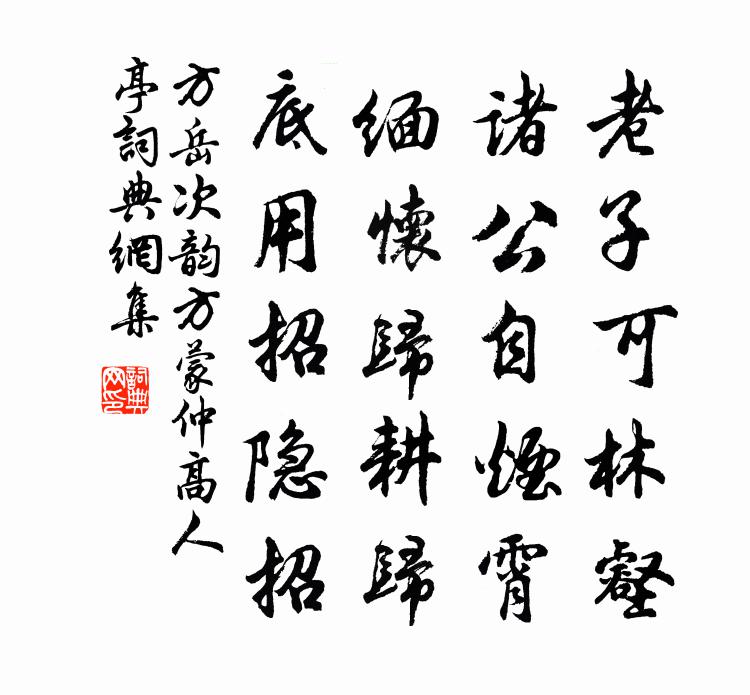 老子可林壑
诸公自煙霄
緬懷歸耕歸
底用招隐招
方岳次韵方蒙仲高人
亭詞典網集
詞典
网印